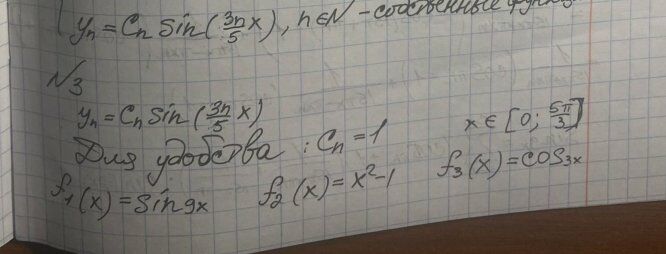 yₙ = Cₙ sin(3n/5 x), n∈N - собственные функц
N3
yₙ = Cₙ sin(3n/5 x) x ∈ [0; 5π/3]
Для удобства : Cₙ = 1
f₁(x) = sin9x f₂(x) = x²-1 f₃(x) = cos3x